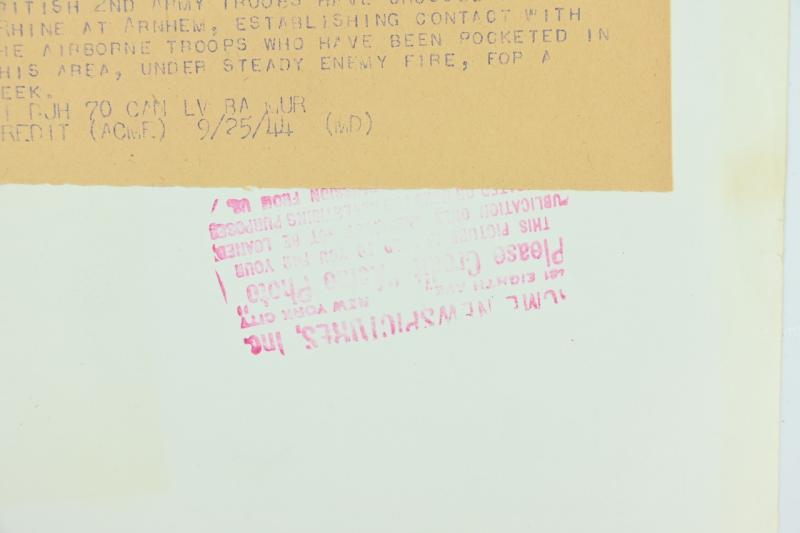 BRITISH 2ND ARMY TROOPS HAVE
RHINE AT ARNHEM, ESTABLISHING CONTACT WITH
HE AIRBORNE TROOPS WHO HAVE BEEN POCKETED IN
HIS AREA, UNDER STEADY ENEMY FIRE, FOR A
EEK.
DJH 70 CAN LV BA MUR
REDIT (ACME) 9/25/44 (MD)
NEWSPICTURES, Inc.
461 EIGHTH AVE., NEW YORK CITY
Please Credit "Acme Photo"
THIS PICTURE TO YOU FOR YOUR
PUBLICATION ONLY BE LOANED,
PURPOSES
FROM US.